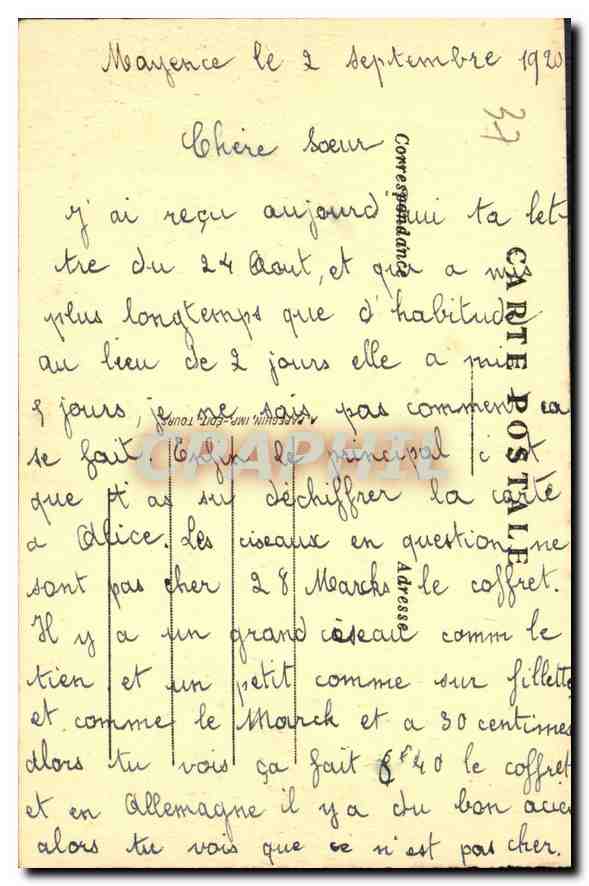 Mayence le 2 septembre 1920
37
Chère Soeur
J'ai reçu aujourd'hui ta let-
tre du 24 Aout, et qui a mis
plus longtemps que d'habitude
au lieu de 2 jours elle a mis
jours, je ne sais pas comment ca
se fait. Enfin le principal c'est
que t'as su déchiffrer la carte
a Alice. Les ciseaux en question ne
sont pas cher 28 Marcks le coffret.
Il y a un grand ciseau comm le
tien et un petit comme sur fillette
et comme le Marck et a 30 centimes
alors tu vois ça fait 8f40 le coffret
et en Allemagne il y a du bon acier
alors tu vois que ce n'est pas cher.
CARTE POSTALE
Correspondance
Adresse
A. PAPEGHIN, IMP.-ÉDIT. TOURS
CPAPHIL